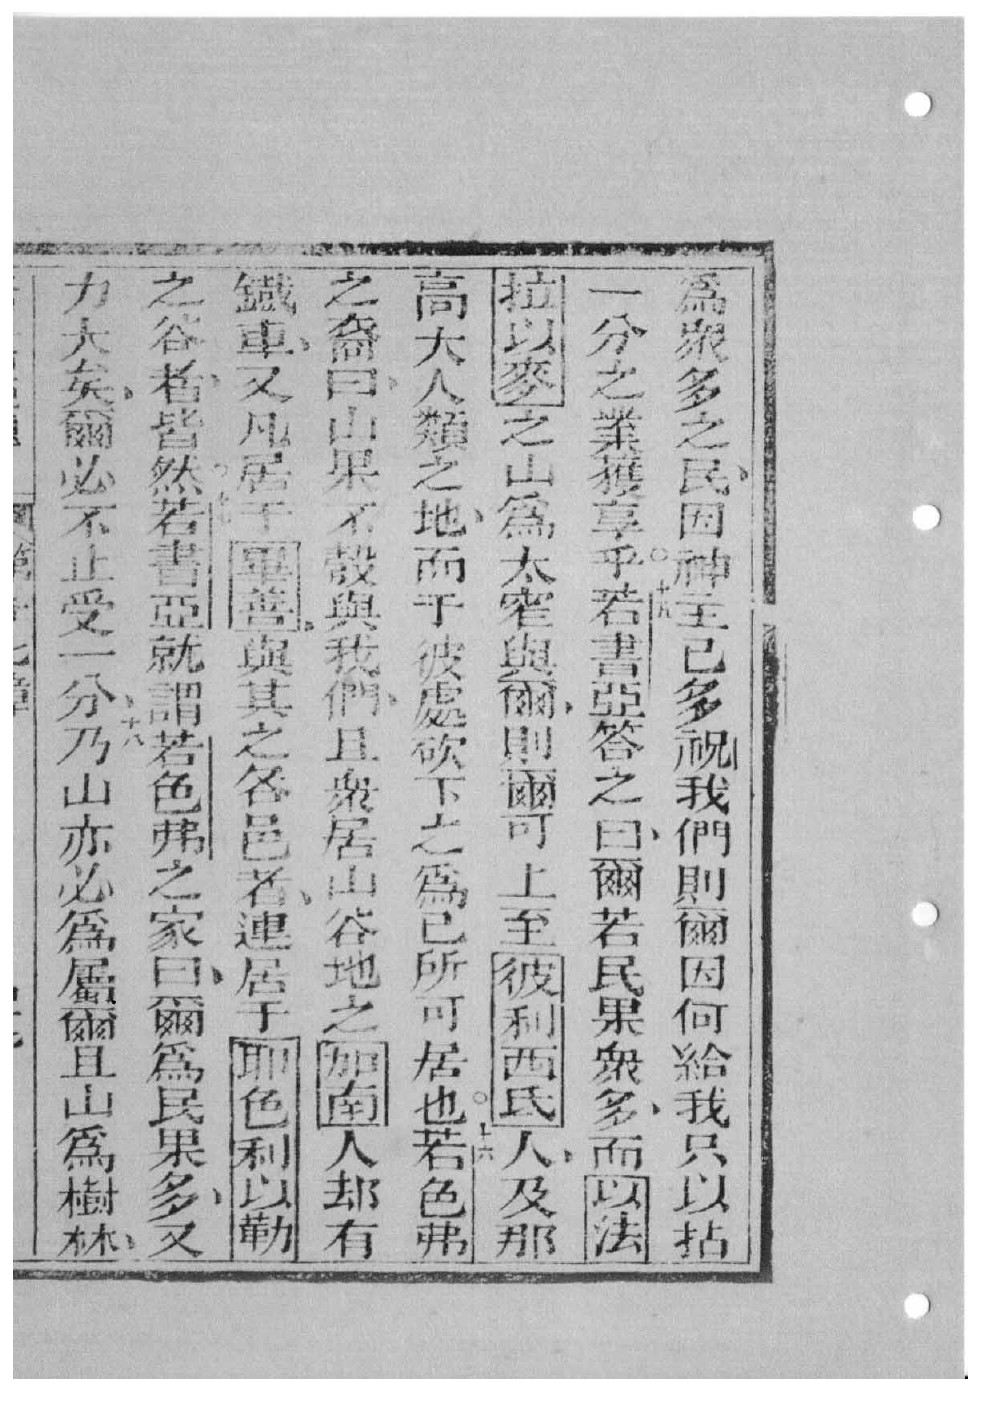 爲衆多之民因神主已多祝我們則爾因何給我只以拈
一分之業獲享乎○十五若書亞答之曰爾若民果衆多而以法
拉以麥之山爲太窄與爾則爾可上至彼利西氏人及那
高大人類之地而于彼處砍下之爲已所可居也○十六若色弗
之裔曰山果不彀與我們且衆居山谷地之加南人却有
鐵車又凡居于畢善與其之各邑者連居于耶色利以勒
之谷者皆然○十七若書亞就謂若色弗之家曰爾爲民果多又
力大矣爾必不止受一分十八乃山亦必爲屬爾且山爲樹林